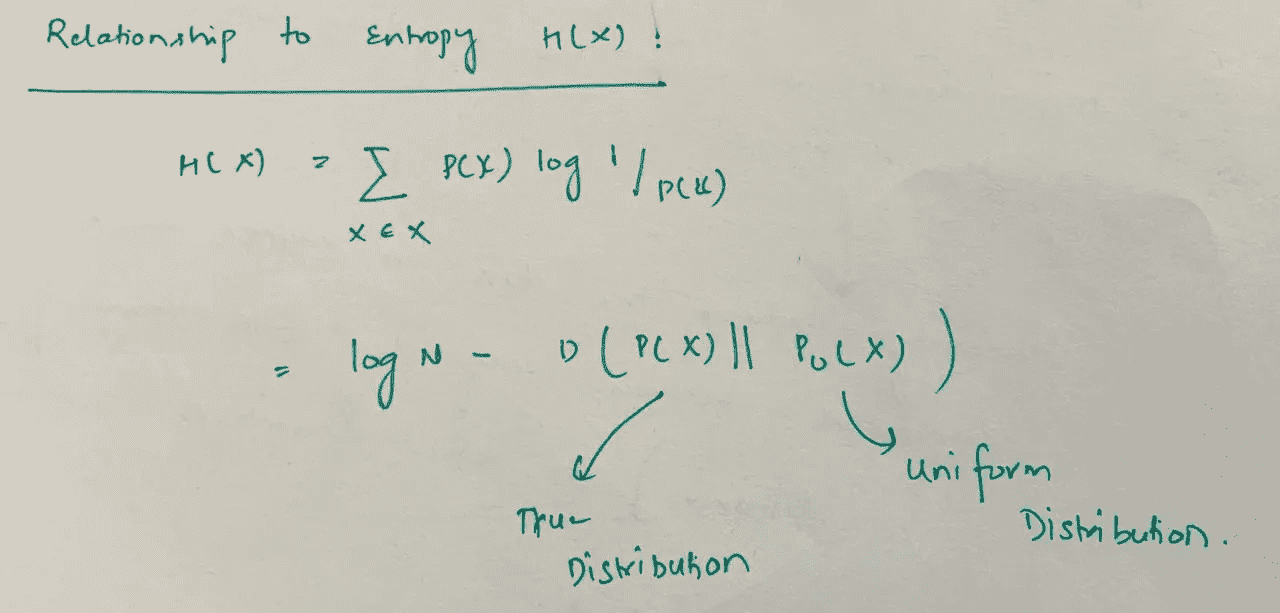 Relationship to Entropy H(X) :
H(X) = ∑ P(X) log 1/P(X)
X ∈ X
= log N - D ( P(X) || P_U(X) )
True Distribution
Uniform Distribution.